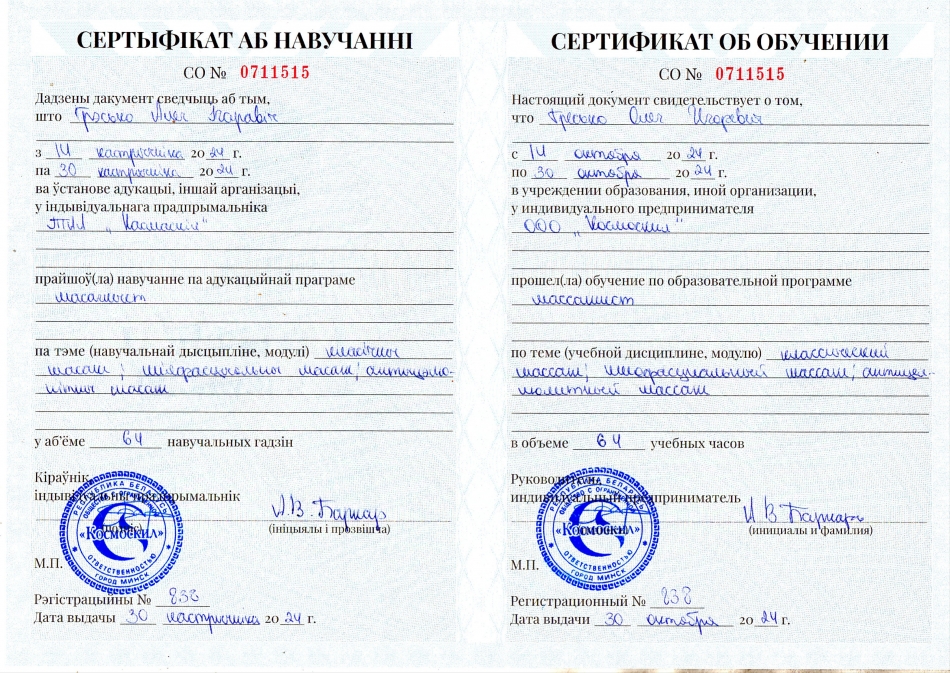 СЕРТЫФІКАТ АБ НАВУЧАННІ
СО № 0711515
Дадзены дакумент сведчыць аб тым,
што Грэсько Алег Ігаравіч
з 14 кастрычніка 2024 г.
па 30 кастрычніка 2024 г.
ва ўстанове адукацыі, іншай арганізацыі,
у індывідуальнага прадпрымальніка
ТАА „Касмаскіл"
прайшоў(ла) навучанне па адукацыйнай праграме
масажыст
па тэме (навучальнай дысцыпліне, модулі) класічны
масаж; міяфасцыяльны масаж; антыцэлю-
літны масаж
у аб'ёме 64 навучальных гадзін
Кіраўнік
індывідуальны прадпрымальнік
(подпіс)
(ініцыялы і прозвішча)
РЕСПУБЛИКА БЕЛАРУСЬ
«Космоскил»
ОТВЕТСТВЕННОСТЬЮ
ГОРОД МИНСК
М.П.
Рэгістрацыйны № 838
Дата выдачы 30 кастрычніка 2024 г.
СЕРТИФИКАТ ОБ ОБУЧЕНИИ
СО № 0711515
Настоящий документ свидетельствует о том,
что Гресько Олег Игоревич
с 14 октября 2024 г.
по 30 октября 2024 г.
в учреждении образования, иной организации,
у индивидуального предпринимателя
ООО „Космоскил"
прошел(ла) обучение по образовательной программе
массажист
по теме (учебной дисциплине, модулю) классический
массаж; миофасциальный массаж; антицел-
люлитный массаж
в объеме 64 учебных часов
Руководитель
индивидуальный предприниматель
(инициалы и фамилия)
РЕСПУБЛИКА БЕЛАРУСЬ
«Космоскил»
ОТВЕТСТВЕННОСТЬЮ
ГОРОД МИНСК
М.П.
Регистрационный № 838
Дата выдачи 30 октября 2024 г.